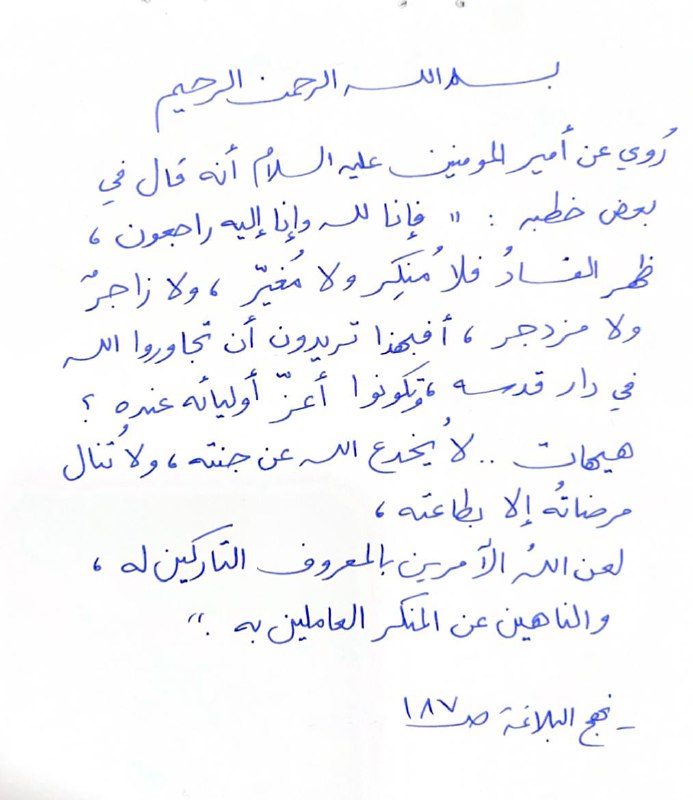 بسم الله الرحمن الرحيم
رُوي عن أمير المومنين عليه السلامُ أنه قال في
بعض خطبه : " فإنا لله وإنا إليه راجعون ،
ظهر الفسادُ فلا مُنكِر ولا مُغيّر ، ولا زاجرٌ
ولا مزدجر ، أفبهذا تريدون أن تجاوروا الله
في دار قدسه ، وتكونوا أعزّ أوليائه عنده ؟
هيهات .. لا يُخدع الله عن جنته ، ولا تُنال
مرضاتُه إلا بطاعته ،
لعن اللهُ الآمرين بالمعروف التاركين له ،
والناهين عن المنكر العاملين به . "
ـ نهج البلاغة ص ١٨٧